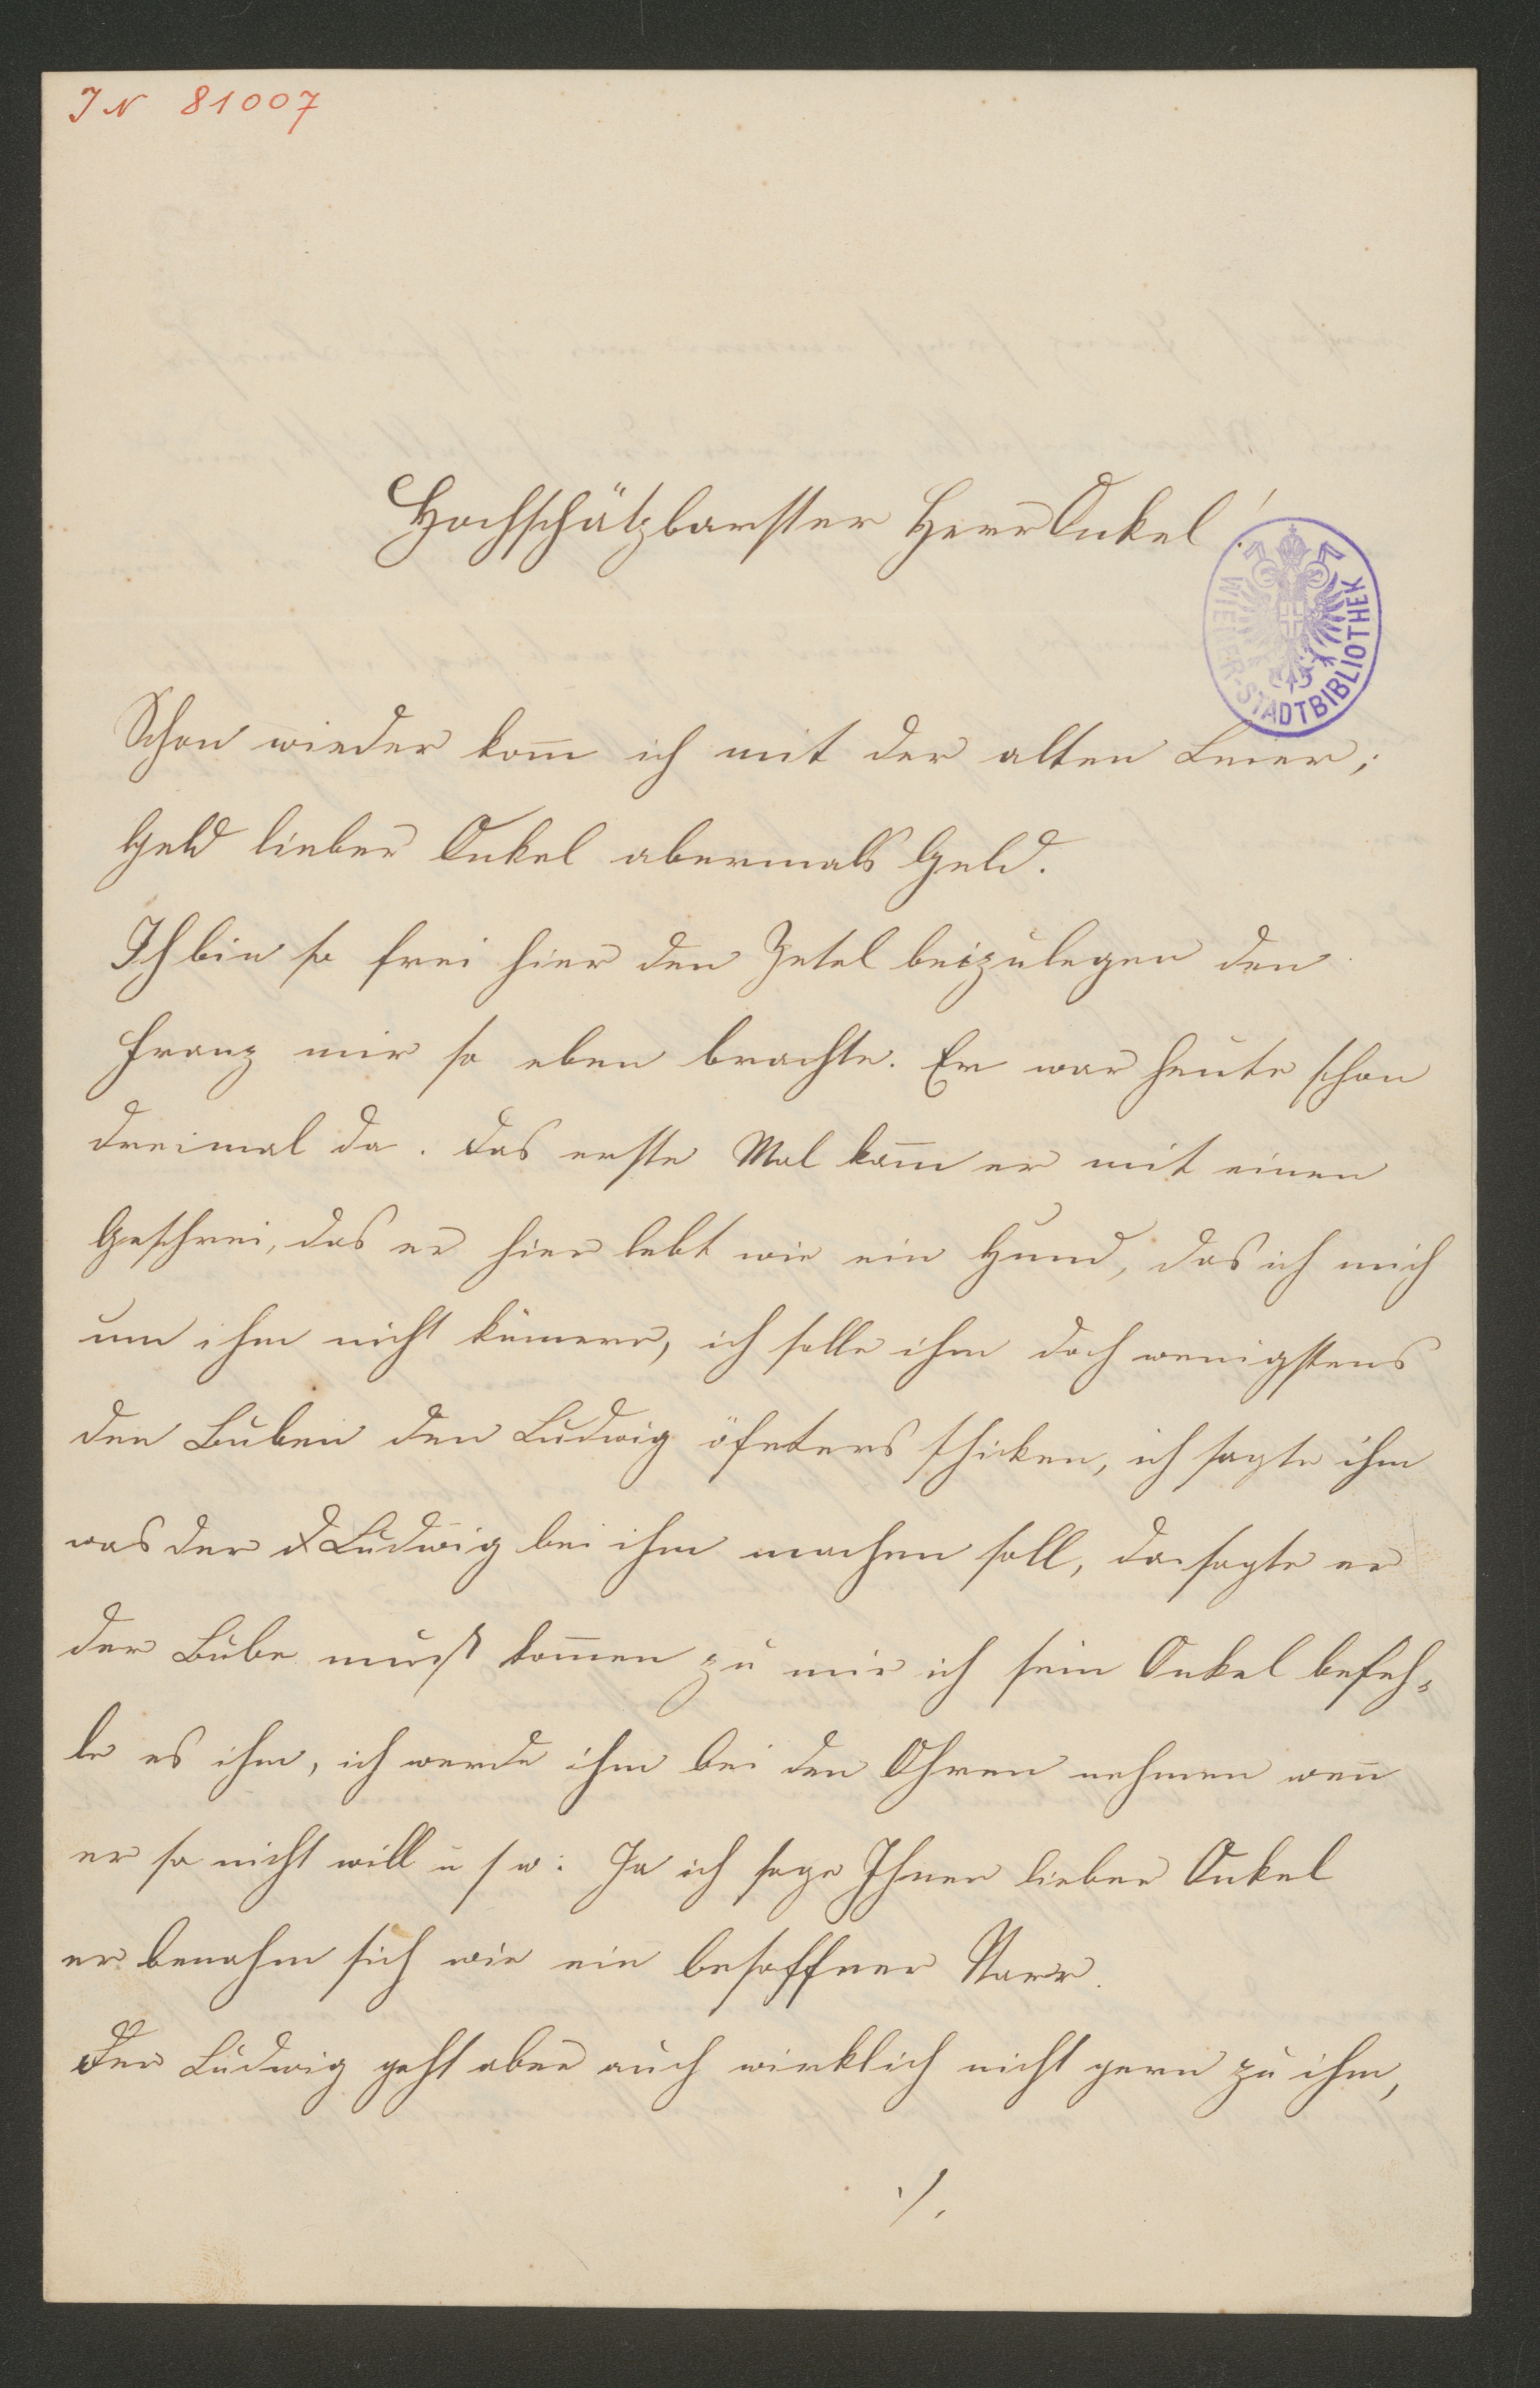 IN 81007
Hochschätzbarster Herr Onkel!
WIENER-STADTBIBLIOTHEK
Schon wieder kom̅ ich mit der alten Leier;
Geld lieber Onkel abermals Geld.
Ich bin so frei hier den Zetel beizulegen den
Franz mir so eben brachte. Er war heute schon
dreimal da. Das erste Mal kam̅ er mit einen
Geschrei, das er hier lebt wie ein Hund, das ich mich
um ihm nicht küm̅ere, ich solle ihm doch wenigstens
den Buben den Ludwig öfeters schicken, ich sagte ihm
was der d Ludwig bei ihm machen soll, da sagte er
der Bube muß kom̅en zu mir ich sein Onkel befeh-
le es ihm, ich werde ihm bei den Ohren nehmen wen̅
er so nicht will u s w: Ja ich sage Ihnen lieber Onkel
er benahm sich wie ein besoffner Narr.
Der Ludwig geht aber auch wirklich nicht gern zu ihm,
./.